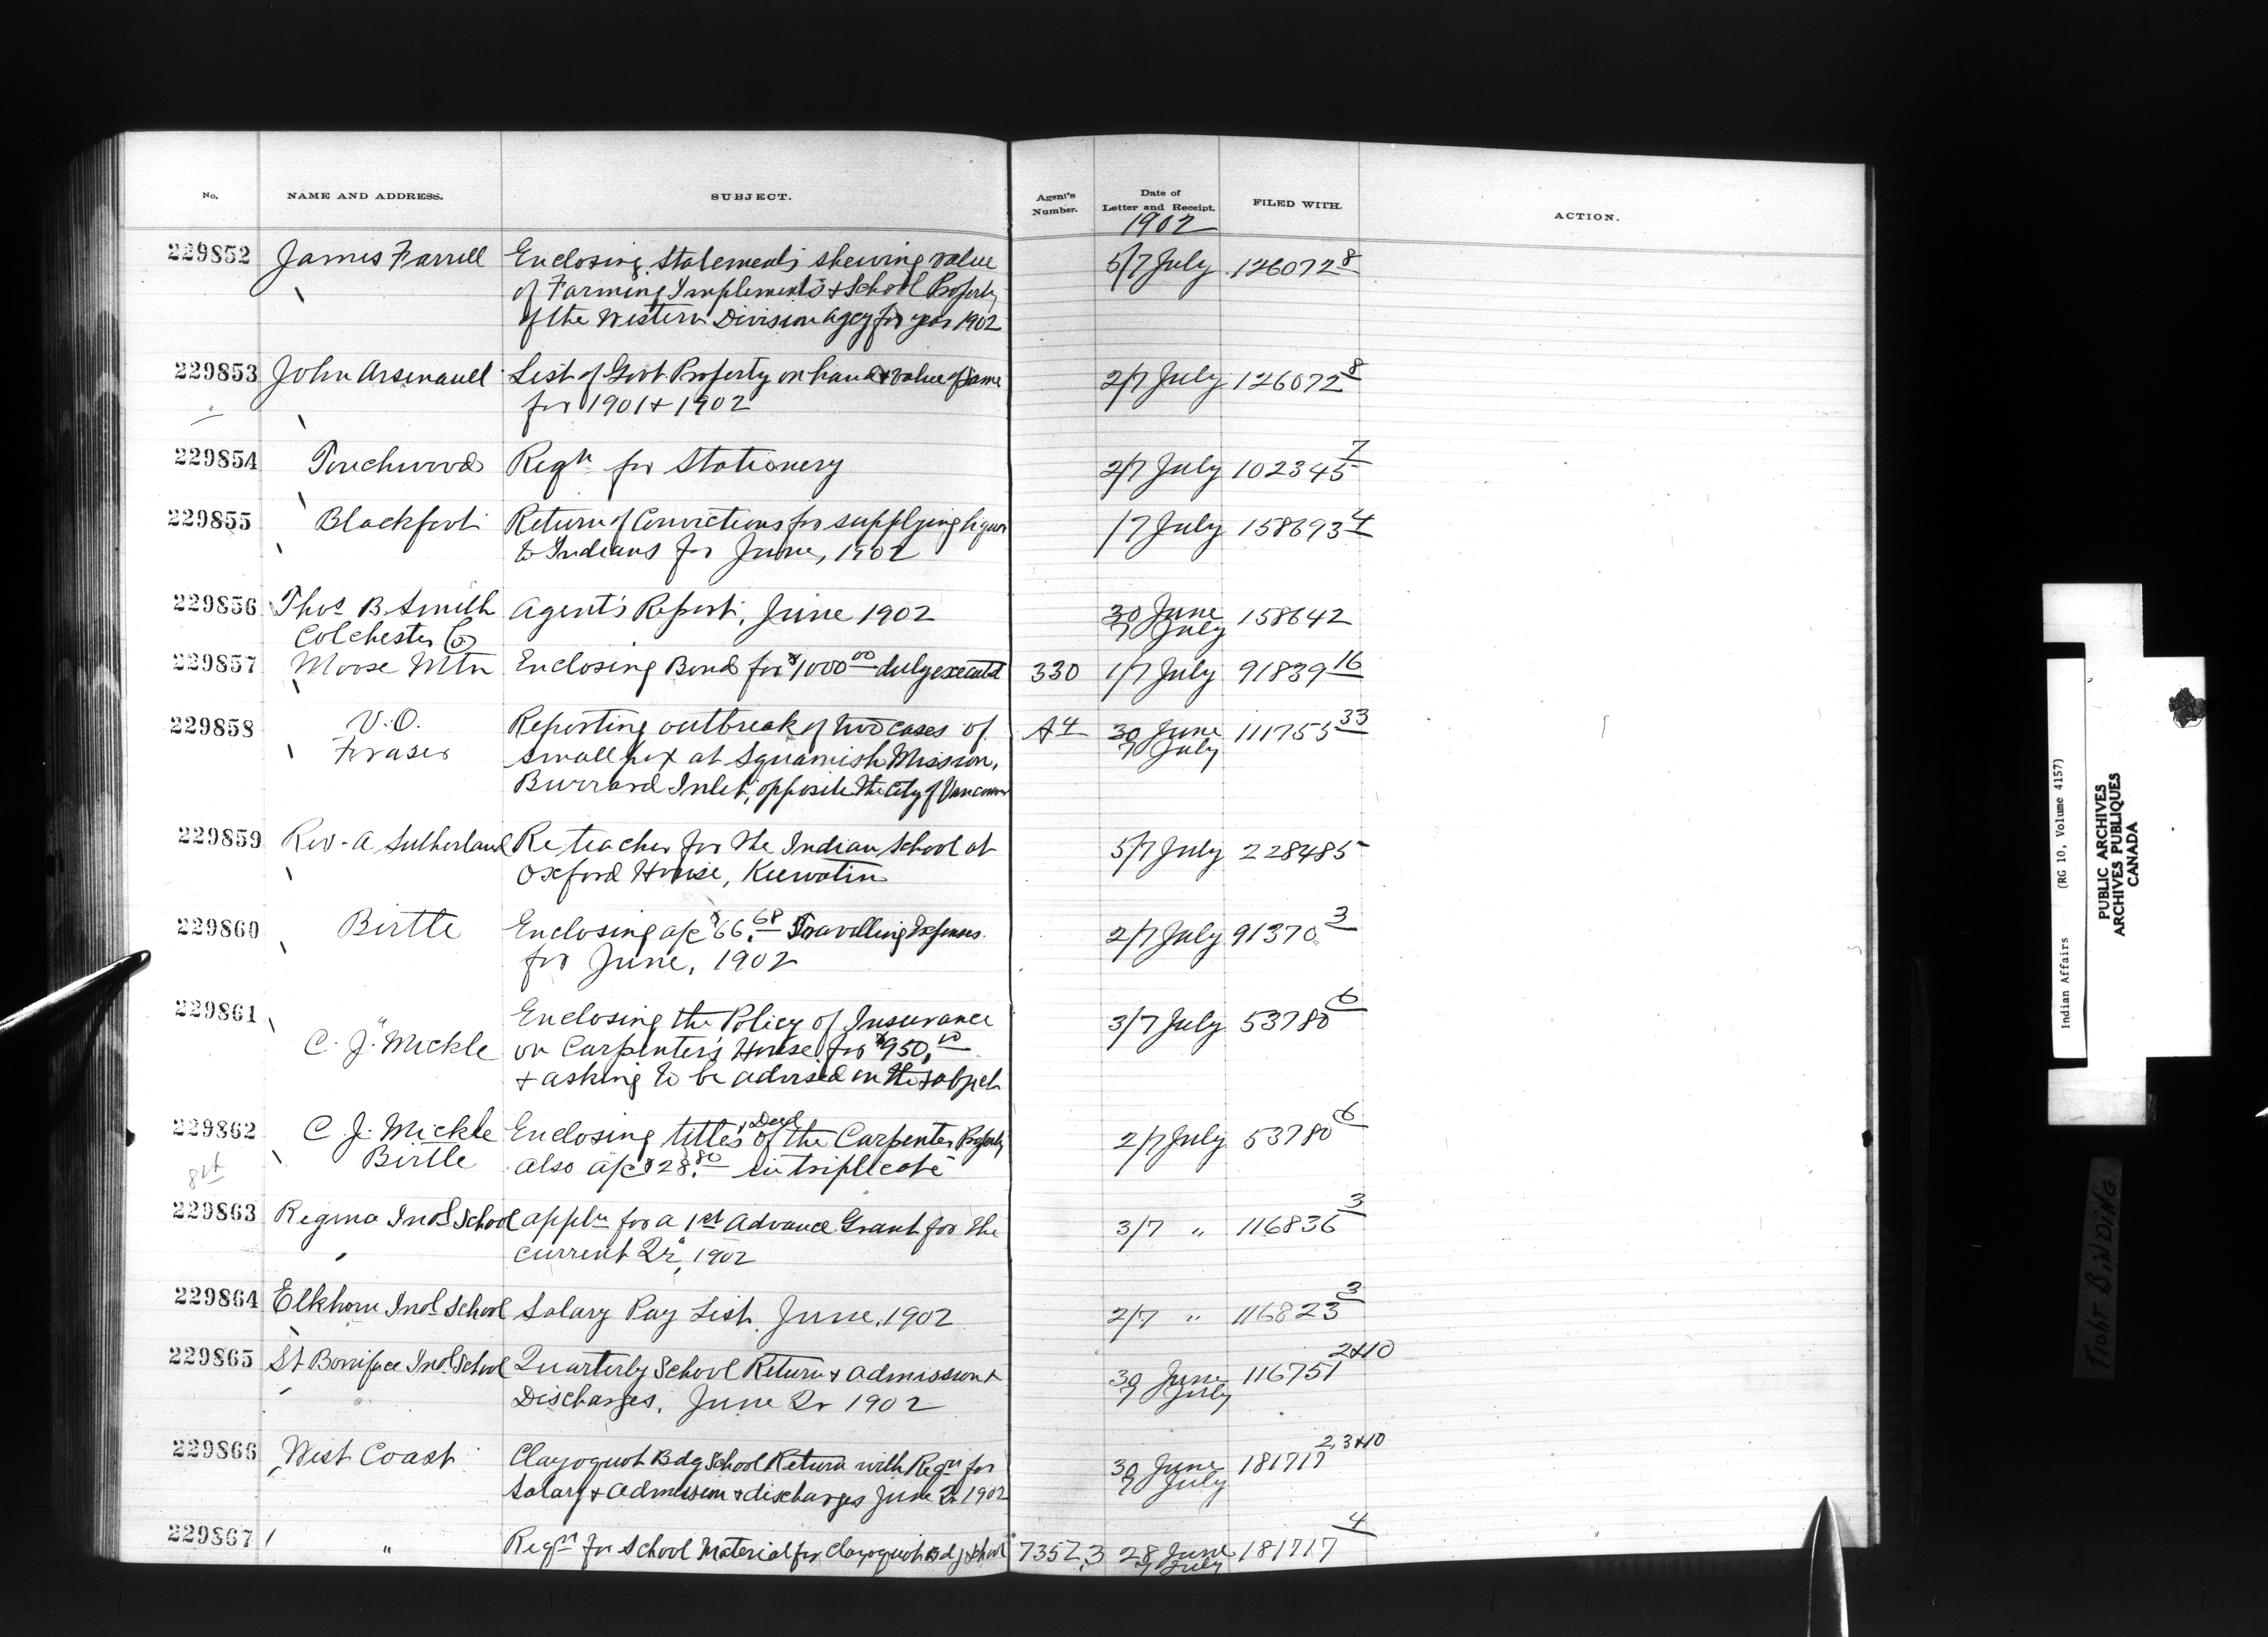 No. NAME AND ADDRESS. SUBJECT. Agent's Number. Date of Letter and Receipt. FILED WITH. ACTION.
1902
229852 James Farrell Enclosing statements shewing value 5/7 July 126072 8
of Farming Implements & School Property
of the Western Division Agcy for year 1902
229853 John Arsenault List of Govt Property on hand & value of same 2/7 July 126072 8
for 1901 & 1902
229854 Touchwood Reqn for Stationery 2/7 July 102345 7
229855 Blackfoot Return of Convictions for supplying liquor 1/7 July 158693 4
to Indians for June, 1902
229856 Thos B. Smith Agent's Report, June 1902 30 June 158642
Colchester Co 7 July
229857 Moose Mtn Enclosing Bond for $1000 00 duly executed 330 1/7 July 91839 16
229858 V.O. Reporting outbreak of two cases of A4 30 June 111755 33
Fraser smallpox at Squamish Mission, 7 July
Burrard Inlet, opposite the City of Vancouver
229859 Rev. A Sutherland Re teacher for the Indian School at 5/7 July 228485
Oxford House, Keewatin
229860 Birtle Enclosing a/c $66.68 Travelling Expenses 2/7 July 91370 3
for June, 1902
229861 " Enclosing the Policy of Insurance 3/7 July 53780 6
C. J. Mickle on Carpenter's House for $950.00
& asking to be advised on the subject
229862 C. J. Mickle Enclosing titles, Deed of the Carpenter Property 2/7 July 53780 6
Birtle also a/c $28.80 in triplicate
229863 Regina Indl School Appln for a 1st Advance Grant for the 3/7 " 116836 3
current Qr, 1902
229864 Elkhorn Indl School Salary Pay List June, 1902 2/7 " 116823 3
229865 St Boniface Indl School Quarterly School Return & Admission & 30 June 116751 2&10
Discharges, June Qr 1902 7 July
229866 West Coast Clayoquot Bdg School Return with Reqn for 30 June 181717 2,3&10
Salary & Admission & discharges June Qr 1902 7 July
229867 " Reqn for School Material for Clayoquot Bdg School 7357.3 28 June 181717 4
7 July
Indian Affairs (RG 10, Volume 4157)
PUBLIC ARCHIVES
ARCHIVES PUBLIQUES
CANADA
TIGHT BINDING